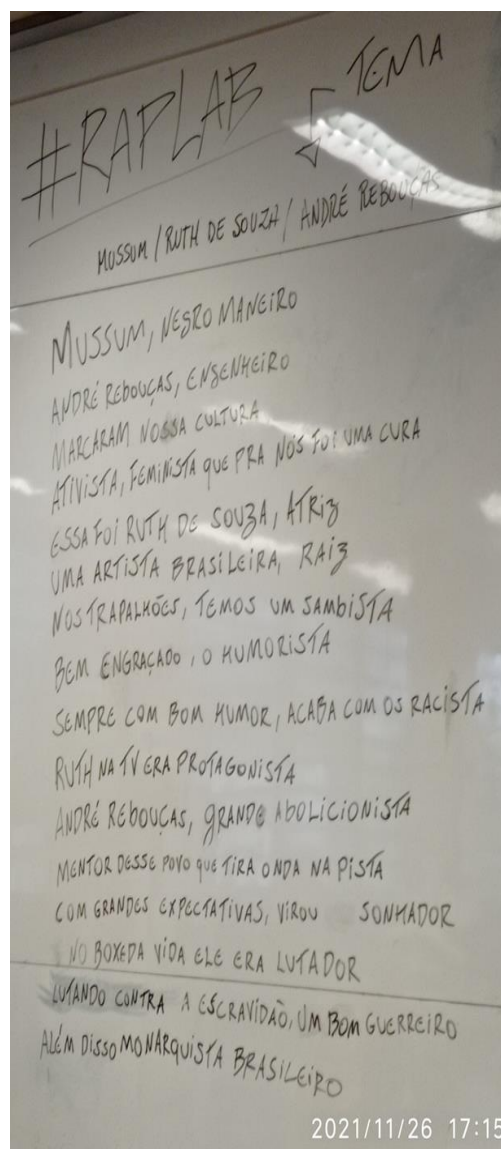 #RAPLAB TEMA
MUSSUM / RUTH DE SOUZA / ANDRÉ REBOUÇAS
MUSSUM, NEGRO MANEIRO
ANDRÉ REBOUÇAS, ENGENHEIRO
MARCARAM NOSSA CULTURA
ATIVISTA, FEMINISTA QUE PRA NÓS FOI UMA CURA
ESSA FOI RUTH DE SOUZA, ATRIZ
UMA ARTISTA BRASILEIRA, RAIZ
NOS TRAPALHÕES, TEMOS UM SAMBISTA
BEM ENGRAÇADO, O HUMORISTA
SEMPRE COM BOM HUMOR, ACABA COM OS RACISTA
RUTH NA TV ERA PROTAGONISTA
ANDRÉ REBOUÇAS, GRANDE ABOLICIONISTA
MENTOR DESSE POVO QUE TIRA ONDA NA PISTA
COM GRANDES EXPECTATIVAS, VIROU SONHADOR
NO BOXE DA VIDA ELE ERA LUTADOR
LUTANDO CONTRA A ESCRAVIDÃO, UM BOM GUERREIRO
ALÉM DISSO MONARQUISTA BRASILEIRO
2021/11/26 17:15